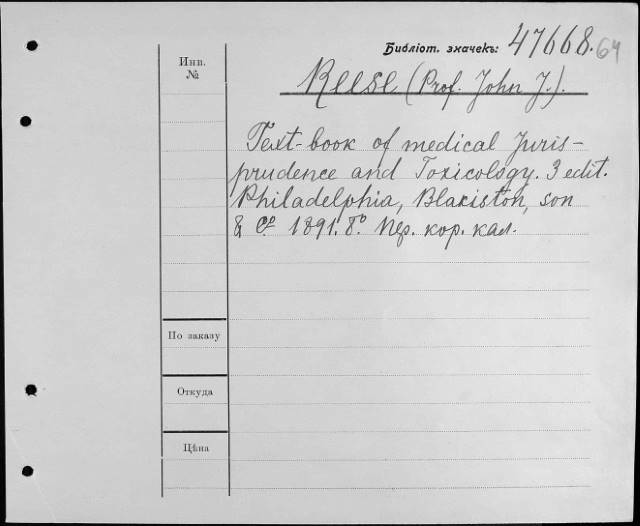 Библіот. значекъ: 47668.64
Инв.
№
Reese (Prof. John J.).
Text-book of medical Juris-
prudence and Toxicology. 3 edit.
Philadelphia, Blakiston, son
& Cº 1891. 8º. Пер. кор. кал.
По заказу
Откуда
Цѣна